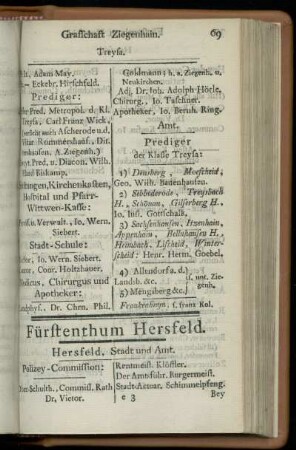 Grafschaft Ziegenhain. 69
Treysa.
Adam May.
Eckebr. Hirschfeld.
Prediger:
Pred. Metropol. d. Kl.
Treysa; Carl Franz Wick,
auch Ascherode u.
Rummershauß, Dit.
A. Ziegenh.)
Pred. u. Diacon, Wilh.
Biskamp.
Kirchenkasten,
Hospital und Pfarr-
Wittwen-Kasse:
u. Verwalt. Io. Wern.
Siebert.
Stadt-Schule:
Io. Wern. Siebert.
Conr. Holtzhauer.
Chirurgus und
Apotheker:
Dr. Chrn. Phil.
Goldmann; h. a. Ziegenh. u.
Neukirchen.
Adj. Dr. Joh. Adolph Hörle.
Chirurg, Io. Taschner.
Apotheker, Io. Beruh. Ring.
Amt.
Prediger
der Klasse Treysa:
1) Densberg, Moescheid,
Geo. Wilh. Badenhausen.
2) Sebbeterode, Treysbach
H., Schönau, Gilserberg H.
Io. Iust. Gottschalk.
3) Sachsenhausen, Itzenhain,
Appenhain,
Heimbach, Lischeid, Winter-
scheid: Henr. Herm. Goebel.
4) Allendorf a. d.
Landsb. &c.
5) Mengsberg &c.
s. unt. Zie-
genh.
Frankenhayn s. franz. Kol.
Fürstenthum Hersfeld.
Hersfeld, Stadt und Amt.
Polizey-Commission:
Schulth., Commiss. Rath
Dr. Victor.
Rentmeist. Klöffler.
Der Amtsführ. Burgermeist.
Stadt-Actuar. Schimmelpfeng.
e 3 Bey